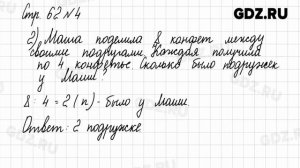 GDZ.RU
Стр. 62 №4
2) Маша поделила 8 конфет между
своими подругами. Каждая получила
по 4 конфетые. Сколько было подружек
у Маши?
8 : 4 = 2 (п) - было у Маши.
Ответ: 2 подружке
GDZ.RU